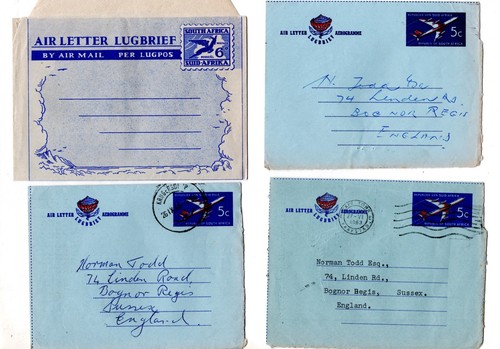 AIR LETTER LUGBRIEF
BY AIR MAIL PER LUGPOS
SOUTH AFRICA
6D
SUID-AFRIKA
AIR LETTER AEROGRAMME
LUGBRIEF
REPUBLIEK VAN SUID-AFRIKA
5c
REPUBLIC OF SOUTH AFRICA
N. Todd Esq
74 Linden Rd.
BOGNOR REGIS
ENGLAND
AIR LETTER AEROGRAMME
LUGBRIEF
5c
Norman Todd
74 Linden Road,
Bognor Regis
Sussex
England.
AIR LETTER AEROGRAMME
LUGBRIEF
5c
Norman Todd Esq.,
74, Linden Rd.,
Bognor Regis, Sussex.
England.